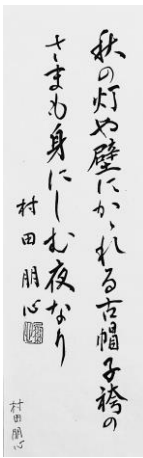 秋の灯や壁にかゝれる古帽子袴の
さまも身にしむ夜なり
村田朋心
村田朋心